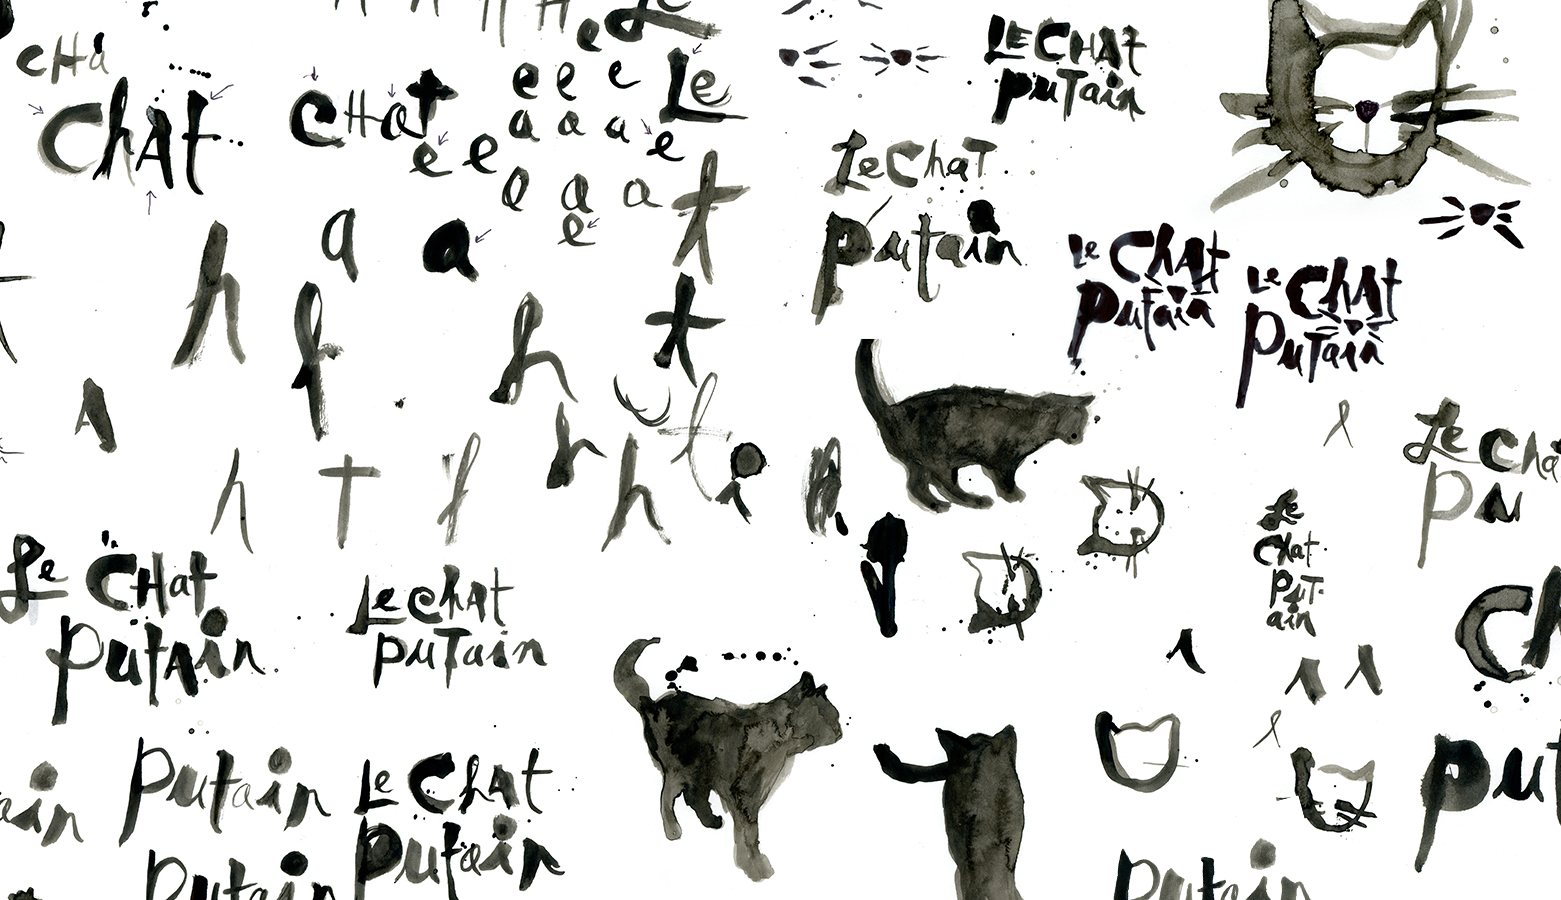 cHa
ChAt
CHat
e
Le
e e e
a a a
e e e
a a a
e
a a
t
h
f
h
t
A
h T f h h t i h
LE CHAT
puTain
Le ChaT
putain
Le ChAt
putain
Le ChAt
puTain
Le Cha
Pu
Le
Chat
PuT-
ain
Ch
put
Le CHat
PutAin
Le chAt
puTain
ain
Putain
Le ChAt
Putain
Putain
Putain